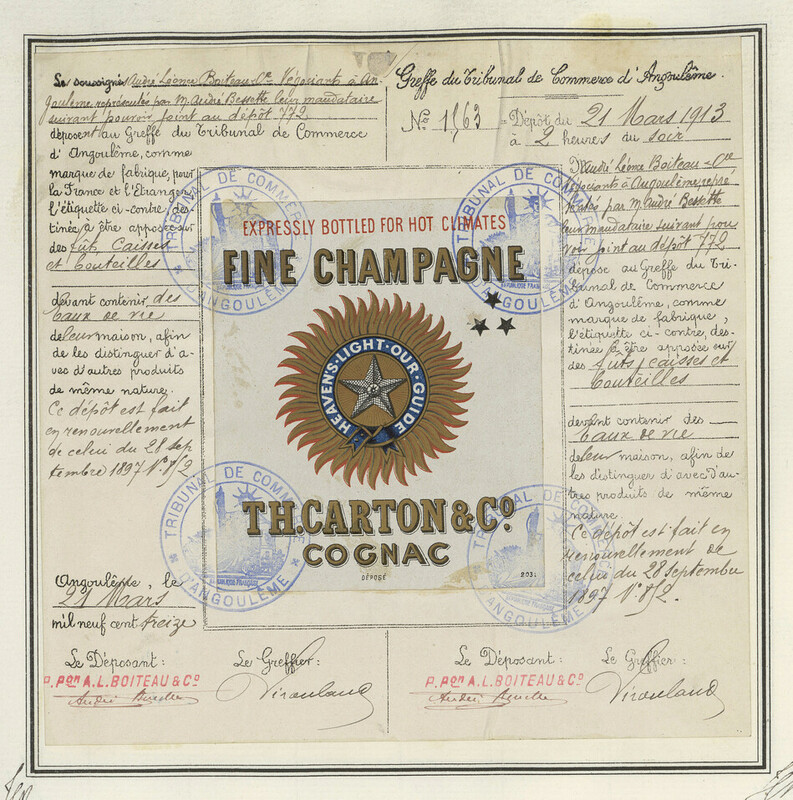 Le soussigné André Léonce Boiteau & Cie Négociants à An-
goulême représentés par M. André Bessette leur mandataire
suivant pouvoir joint au dépôt 772
déposent au Greffe du Tribunal de Commerce
d'Angoulême, comme
marque de fabrique, pour
la France et l'Etranger
l'étiquette ci-contre, des-
tinée à être apposée sur
des fûts, Caisses
et bouteilles
devant contenir des
Eaux de vie
de leur maison, afin
de les distinguer d'a-
vec d'autres produits
de même nature.
Ce dépôt est fait
en renouvellement
de celui du 28 sep
tembre 1897 N° 8/2
Angoulême, le
21 Mars
mil neuf cent treize
Le Déposant:
Le Greffier:
P. PON A.L. BOITEAU & CO
Greffe du Tribunal de Commerce d'Angoulême.
No 1563 = Dépôt du 21 Mars 1913
à 2 heures du soir
André Léonce Boiteau & Cie
Négociants à Angoulême repré
sentés par M. André Bessette
leur mandataire suivant pou
voir joint au dépôt 772
dépose au Greffe du Tri-
bunal de Commerce
d'Angoulême, comme
marque de fabrique,
l'étiquette ci-contre, des-
tinée à être apposée sur
des fûts, caisses et
bouteilles
devant contenir des
Eaux de vie
de leur maison, afin de
les distinguer d'avec d'au-
tres produits de même
nature.
Ce dépôt est fait en
renouvellement de
celui du 28 septembre
1897 N° 8/2.
Le Déposant:
Le Greffier:
P. PON A.L. BOITEAU & CO
EXPRESSLY BOTTLED FOR HOT CLIMATES
FINE CHAMPAGNE
HEAVEN'S·LIGHT·OUR·GUIDE
TH. CARTON & CO.
COGNAC
DÉPOSÉ
203.
TRIBUNAL DE COMMERCE
D'ANGOULÊME
TRIBUNAL DE COMMERCE
RÉPUBLIQUE FRANÇAISE
D'ANGOULÊME
TRIBUNAL DE COMMERCE
RÉPUBLIQUE FRANÇAISE
D'ANGOULÊME
TRIBUNAL DE COMMERCE
D'ANGOULÊME